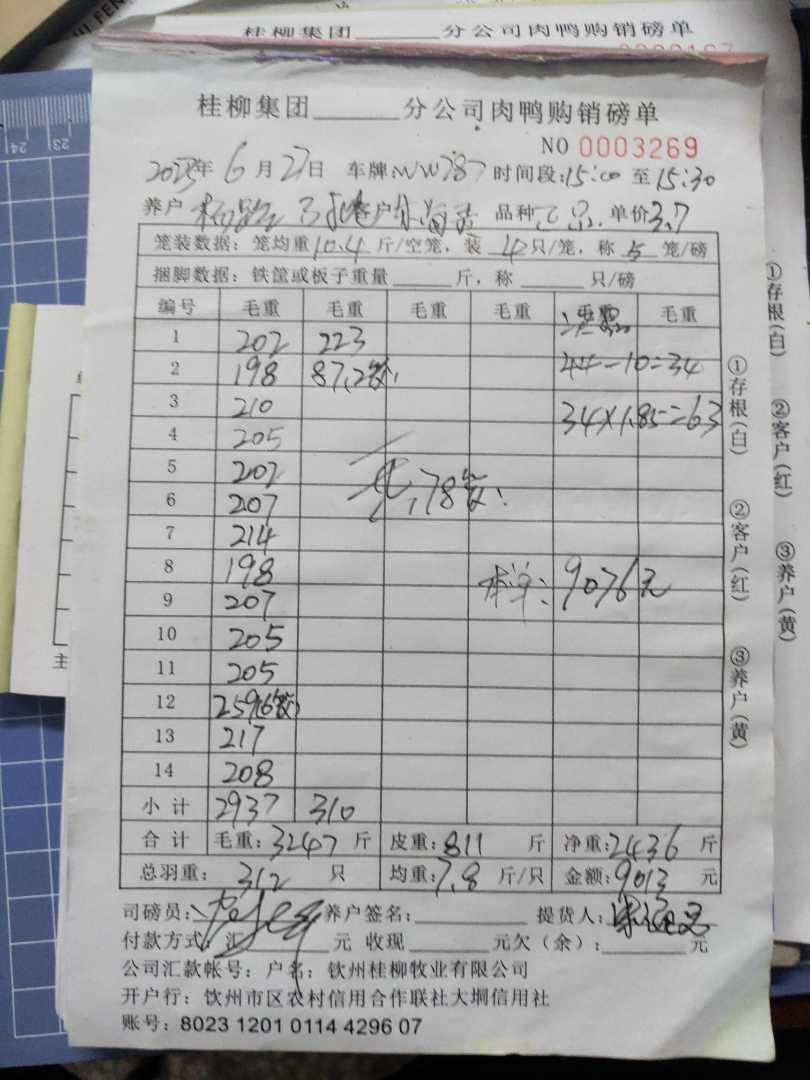 桂柳集团______分公司肉鸭购销磅单
桂柳集团______分公司肉鸭购销磅单
NO 0003269
2023年 6月 27日 车牌 787 时间段:15:00 至 15:30
养户 客户 品种 单价3.7
笼装数据：笼均重10.4斤/空笼，装 4 只/笼，称 5 笼/磅
捆脚数据：铁筐或板子重量______斤，称______只/磅
编号 毛重 毛重 毛重 毛重 毛重
1 202 223
2 198 87,2 44-10=34
3 210 34×1.85=63
4 205
5 202
6 207 共,78
7 214
8 198 9076元
9 207
10 205
11 205
12 259(6
13 217
14 208
小计 2937 310
合计 毛重:3247 斤 皮重:811 斤 净重:2436 斤
总羽重： 312 只 均重:7.8 斤/只 金额:9013 元
司磅员: 养户签名:______ 提货人:
付款方式：汇______元 收现______元欠（余）:______元
公司汇款帐号：户名：钦州桂柳牧业有限公司
开户行：钦州市区农村信用合作联社大垌信用社
账号：8023 1201 0114 4296 07
①存根(白)
②客户(红)
③养户(黄)
①存根(白)
②客户(红)
③养户(黄)
24
23
主